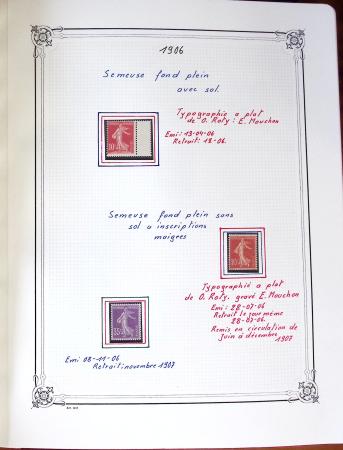 1906
Semeuse fond plein
avec sol.
Typographie a plat
de O. Roty: E. Mouchon
Emi: 13-04-06
Retrait: 13-06.
10
Semeuse fond plein sans
sol a inscriptions
maigres
10
Typographié a plat
de O. Roty, gravé E. Mouchon
Emi: 28-07-06
Retrait le jour même
28-07-06.
Remis en circulation de
Juin à décembre
1907
35
Emi 08-11-06
Retrait: novembre 1907